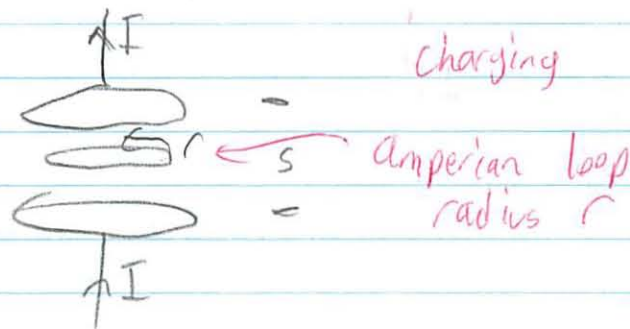 I
charging
-
r
s
amperian loop
radius r
-
I